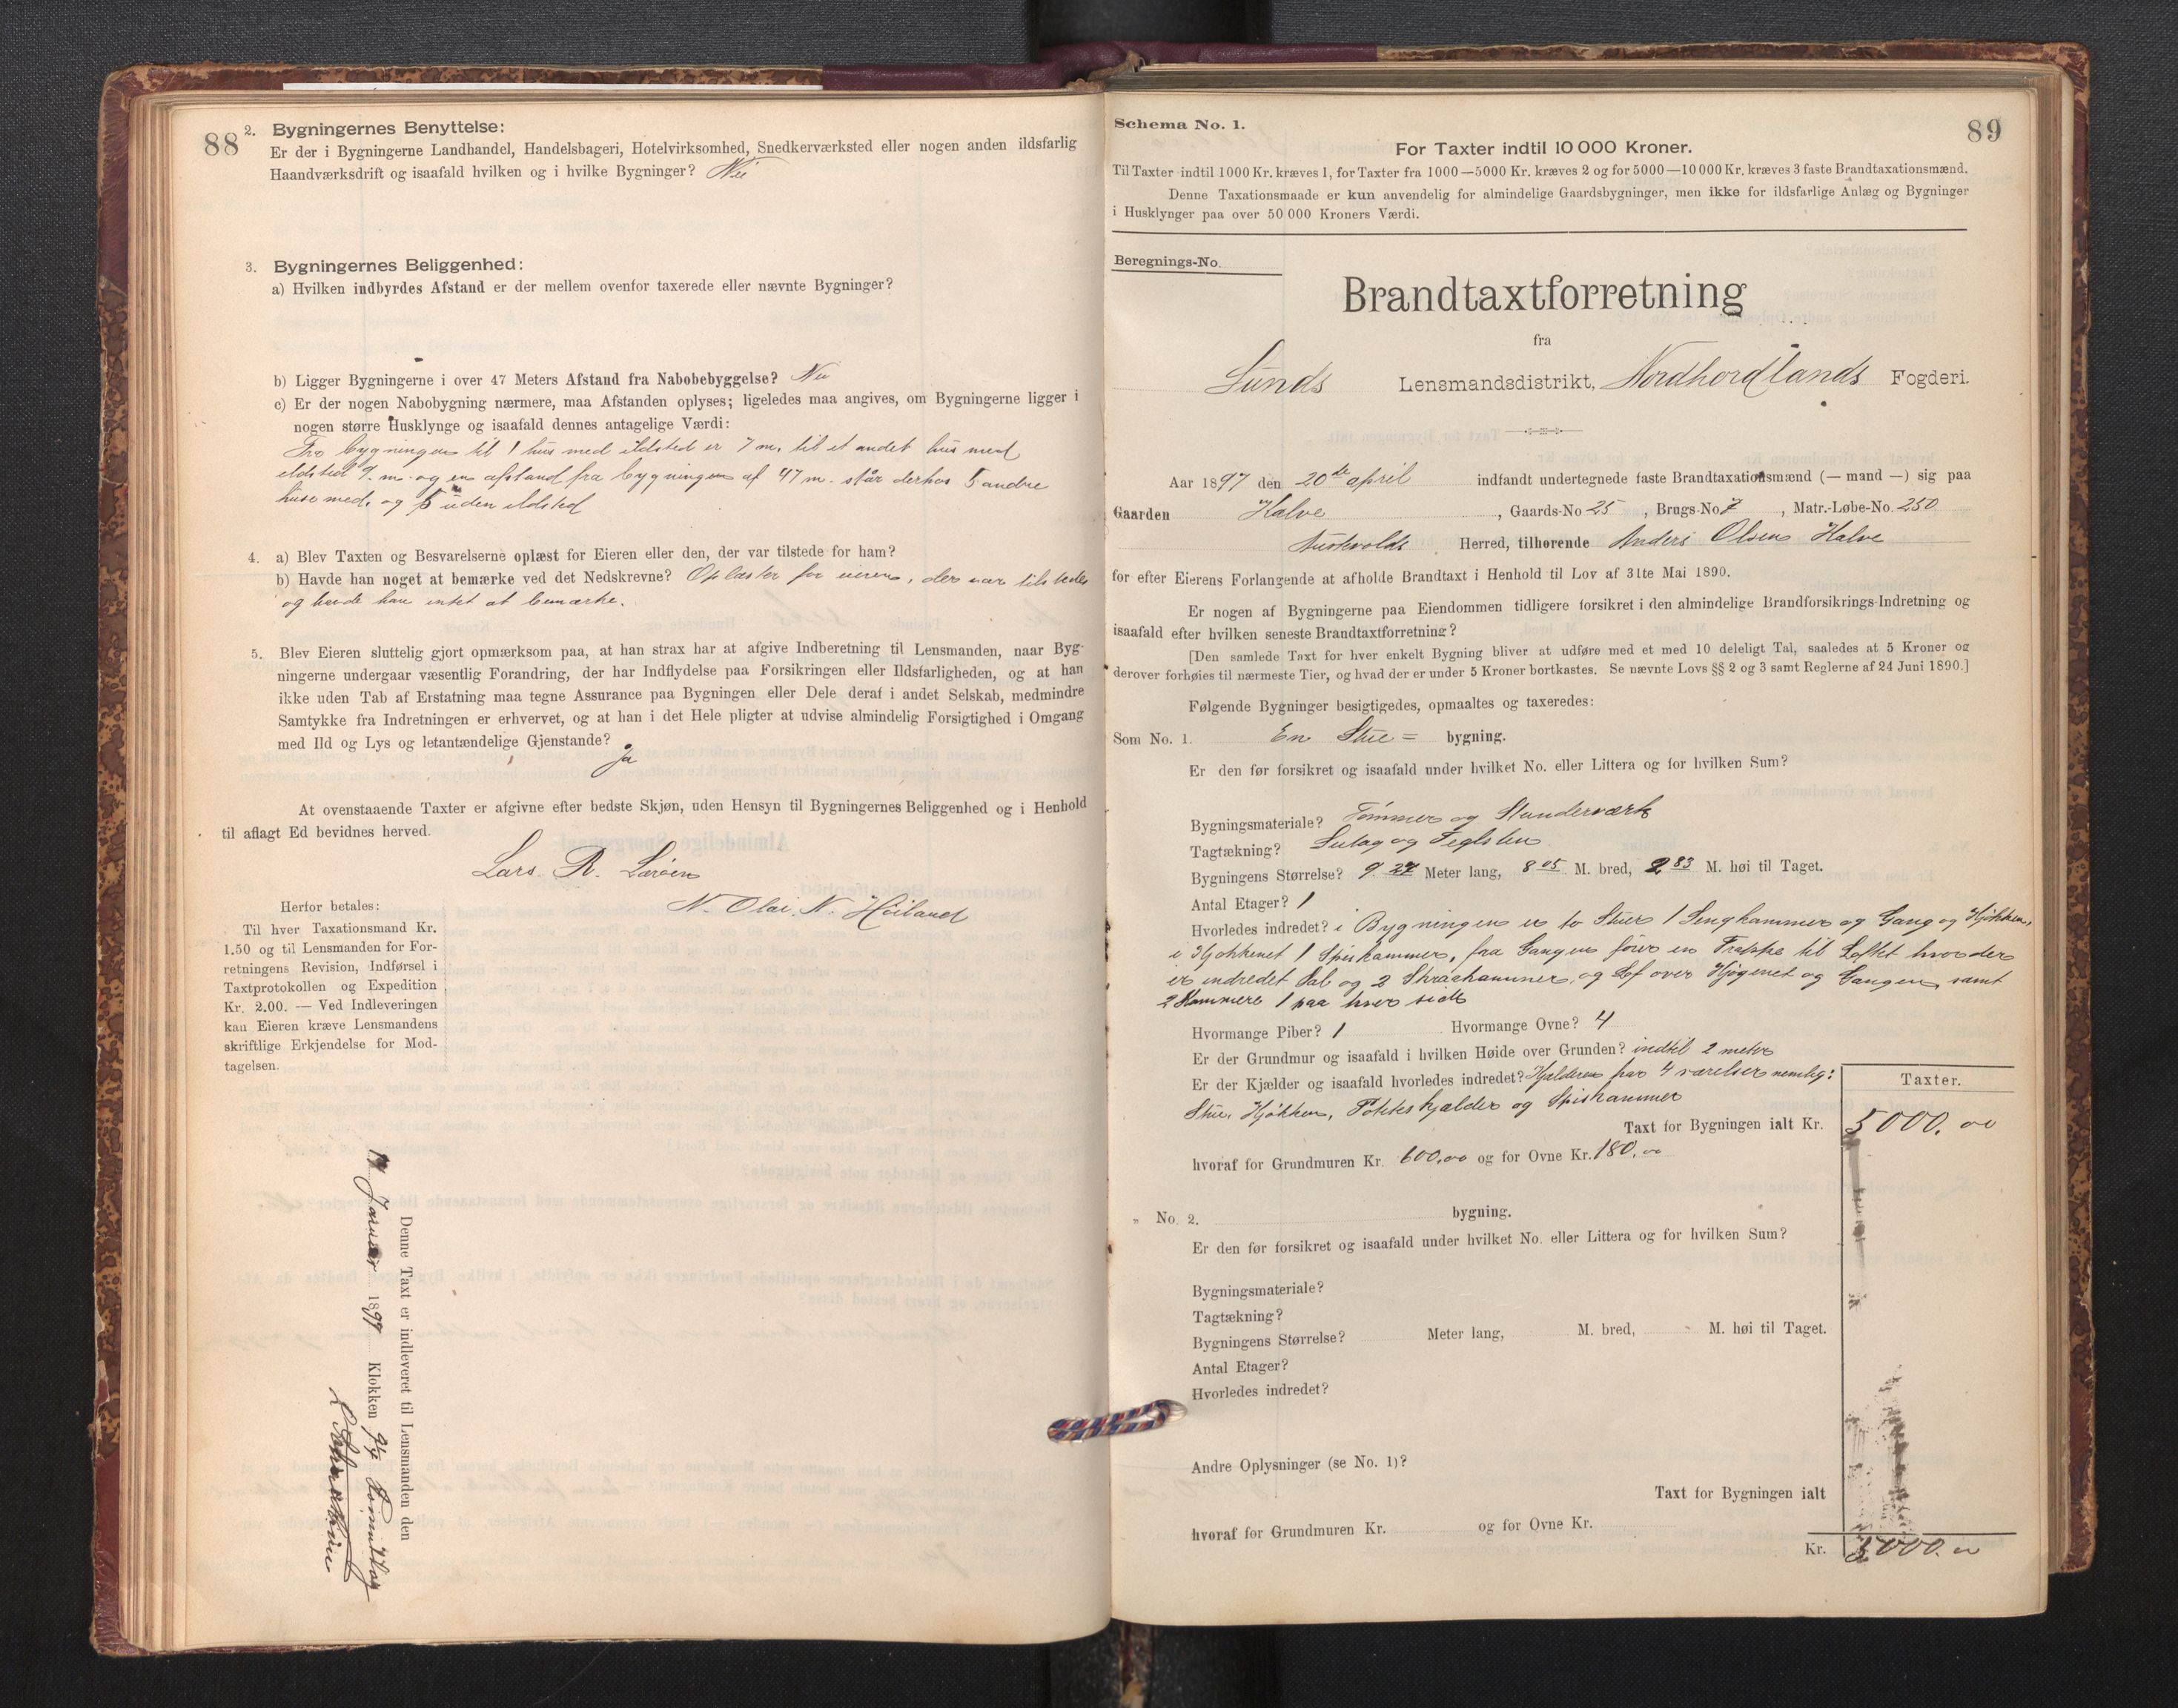 88
2. Bygningernes Benyttelse:
Er der i Bygningerne Landhandel, Handelsbageri, Hotelvirksomhed, Snedkerværksted eller nogen anden ildsfarlig
Haandværksdrift og isaafald hvilken og i hvilke Bygninger? Nei
3. Bygningernes Beliggenhed:
a) Hvilken indbyrdes Afstand er der mellem ovenfor taxerede eller nævnte Bygninger?
b) Ligger Bygningerne i over 47 Meters Afstand fra Nabobebyggelse? Nei
c) Er der nogen Nabobygning nærmere, maa Afstanden oplyses; ligeledes maa angives, om Bygningerne ligger i
nogen større Husklynge og isaafald dennes antagelige Værdi:
Fra bygningen til 1 hus med ildsted er 7 m, til et andet hus med
ildsted 9 m. og en afstand fra bygningen af 47 m. står derhos 5 andre
huse med, og 5 uden ildsted
4. a) Blev Taxten og Besvarelserne oplæst for Eieren eller den, der var tilstede for ham?
b) Havde han noget at bemærke ved det Nedskrevne? Oplæstes for eieren, der var tilstede
og havde han intet at bemærke.
5. Blev Eieren sluttelig gjort opmærksom paa, at han strax har at afgive Indberetning til Lensmanden, naar Byg-
ningerne undergaar væsentlig Forandring, der har Indflydelse paa Forsikringen eller Ildsfarligheden, og at han
ikke uden Tab af Erstatning maa tegne Assurance paa Bygningen eller Dele deraf i andet Selskab, medmindre
Samtykke fra Indretningen er erhvervet, og at han i det Hele pligter at udvise almindelig Forsigtighed i Omgang
med Ild og Lys og letantændelige Gjenstande?
Ja
At ovenstaaende Taxter er afgivne efter bedste Skjøn, uden Hensyn til Bygningernes Beliggenhed og i Henhold
til aflagt Ed bevidnes herved.
Lars R.
N. Olai N. Høiland
Herfor betales:
Til hver Taxationsmand Kr.
1.50 og til Lensmanden for For-
retningens Revision, Indførsel i
Taxtprotokollen og Expedition
Kr. 2.00. — Ved Indleveringen
kan Eieren kræve Lensmandens
skriftlige Erkjendelse for Mod-
tagelsen.
Denne Taxt er indleveret til Lensmanden den
Januar 1899 Klokken
89
Schema No. 1.
For Taxter indtil 10 000 Kroner.
Til Taxter indtil 1000 Kr. kræves 1, for Taxter fra 1000—5000 Kr. kræves 2 og for 5000—10 000 Kr. kræves 3 faste Brandtaxationsmænd.
Denne Taxationsmaade er kun anvendelig for almindelige Gaardsbygninger, men ikke for ildsfarlige Anlæg og Bygninger
i Husklynger paa over 50 000 Kroners Værdi.
Beregnings-No.
Brandtaxtforretning
fra
Sunds Lensmandsdistrikt, Nordhordlands Fogderi.
Aar 1897 den 20de april indfandt undertegnede faste Brandtaxationsmænd (— mand —) sig paa
Gaarden Kalve, Gaards-No 25, Brugs-No 7, Matr.-Løbe-No. 250
Austevolds Herred, tilhørende Anders Olsen Kalve
for efter Eierens Forlangende at afholde Brandtaxt i Henhold til Lov af 31te Mai 1890.
Er nogen af Bygningerne paa Eiendommen tidligere forsikret i den almindelige Brandforsikrings-Indretning og
isaafald efter hvilken seneste Brandtaxtforretning?
[Den samlede Taxt for hver enkelt Bygning bliver at udføre med et med 10 deleligt Tal, saaledes at 5 Kroner og
derover forhøies til nærmeste Tier, og hvad der er under 5 Kroner bortkastes. Se nævnte Lovs §§ 2 og 3 samt Reglerne af 24 Juni 1890.]
Følgende Bygninger besigtigedes, opmaaltes og taxeredes:
Som No. 1. En Stue = bygning.
Er den før forsikret og isaafald under hvilket No. eller Littera og for hvilken Sum?
Bygningsmateriale? Tømmer og Stenderværk
Tagtækning? Sutag og Teglsten
Bygningens Størrelse? 9.27 Meter lang, 8 05 M. bred, 2 83 M. høi til Taget.
Antal Etager? 1
Hvorledes indredet? i Bygningen er to Stuer 1 Sengkammer og Gang og Kjøkken,
i Kjøkkenet 1 Spiskammer, fra Gangen fører en Trappe til Loftet hvor der
er indredet Sal og 2 Skraakammer, og Lof over Kjøgenet og Gangen samt
2 Kammere 1 paa hver side
Hvormange Piber? 1 Hvormange Ovne? 4
Er der Grundmur og isaafald i hvilken Høide over Grunden? indtil 2 meter
Er der Kjælder og isaafald hvorledes indredet? Kjelderen har 4 værelser nemlig:
Stue, Kjøkken, Potetskjælder og Spiskammer
Taxter.
Taxt for Bygningen ialt Kr. 5000.00
hvoraf for Grundmuren Kr. 600.00 og for Ovne Kr. 180.00
" No. 2. bygning.
Er den før forsikret og isaafald under hvilket No. eller Littera og for hvilken Sum?
Bygningsmateriale?
Tagtækning?
Bygningens Størrelse? Meter lang, M. bred, M. høi til Taget.
Antal Etager?
Hvorledes indredet?
Andre Oplysninger (se No. 1)?
Taxt for Bygningen ialt
hvoraf for Grundmuren Kr. og for Ovne Kr.
Kr. 5000.00